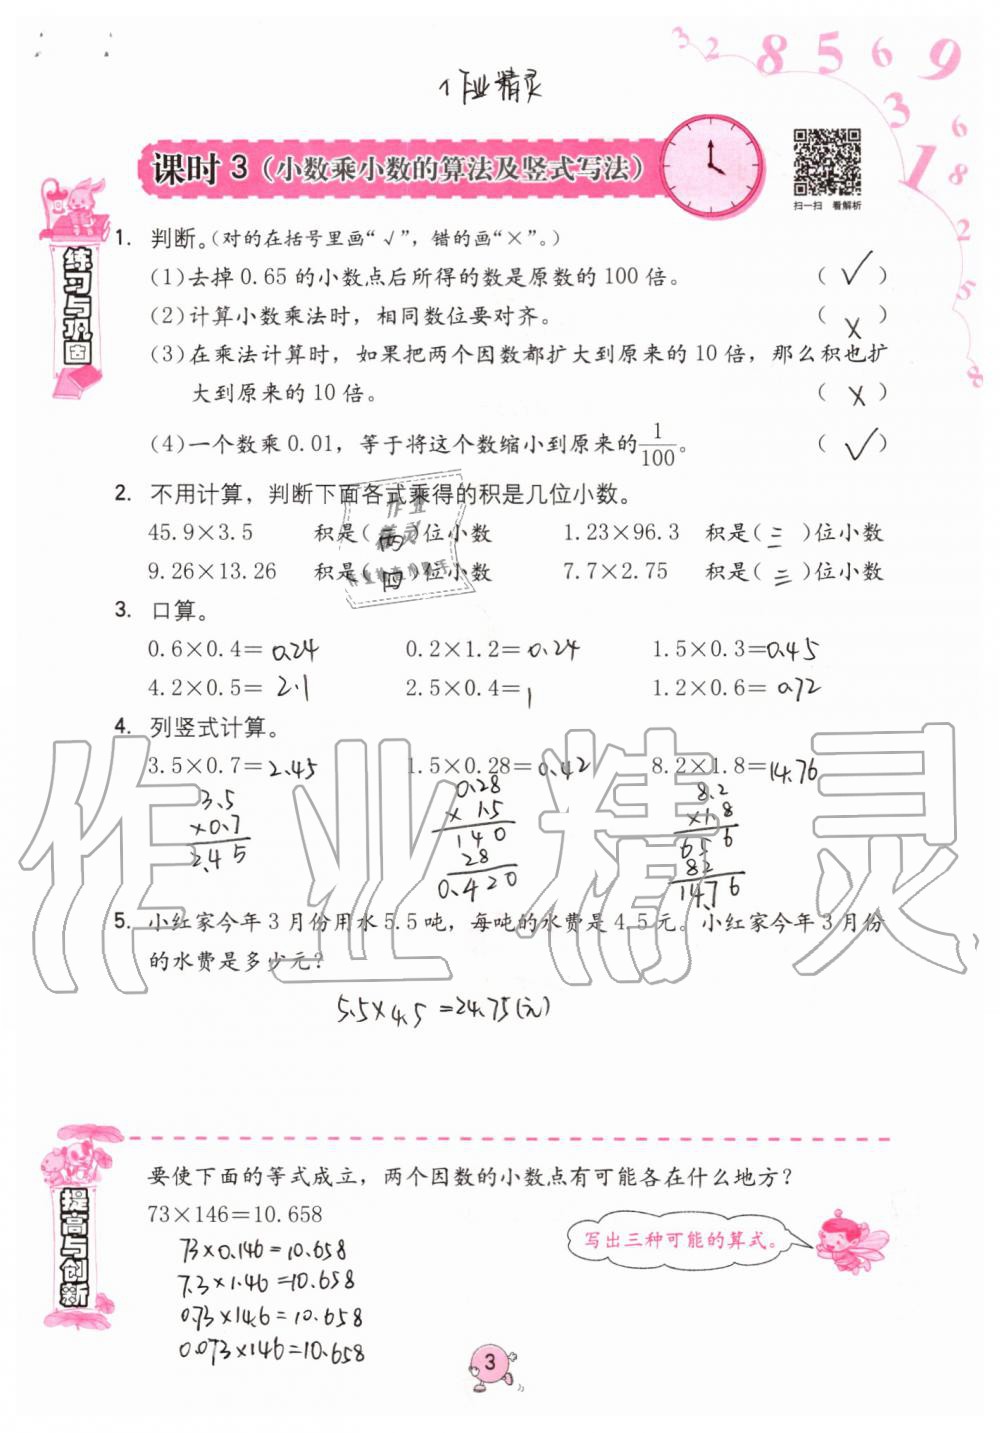 3 2 8 5 6 9
3 6
1 8
2
5
8
作业精灵
课时 3（小数乘小数的算法及竖式写法）
扫一扫 看解析
练习与巩固
1. 判断。（对的在括号里画“√”，错的画“×”。）
(1)去掉 0.65 的小数点后所得的数是原数的 100 倍。 （ √ ）
(2)计算小数乘法时，相同数位要对齐。 （ × ）
(3)在乘法计算时，如果把两个因数都扩大到原来的 10 倍，那么积也扩
大到原来的 10 倍。 （ × ）
(4)一个数乘 0.01，等于将这个数缩小到原来的1/100。 （ √ ）
2. 不用计算，判断下面各式乘得的积是几位小数。
45.9×3.5 积是（ 两 ）位小数 1.23×96.3 积是（ 三 ）位小数
9.26×13.26 积是（ 四 ）位小数 7.7×2.75 积是（ 三 ）位小数
3. 口算。
0.6×0.4= 0.24 0.2×1.2= 0.24 1.5×0.3= 0.45
4.2×0.5= 2.1 2.5×0.4= 1 1.2×0.6= 0.72
4. 列竖式计算。
3.5×0.7= 2.45 1.5×0.28= 0.42 8.2×1.8= 14.76
3.5 0.28 8.2
×0.7 × 1.5 ×1.8
2.45 140 656
28 82
0.420 14.76
5. 小红家今年 3 月份用水 5.5 吨，每吨的水费是 4.5 元。小红家今年 3 月份
的水费是多少元？
5.5×4.5=24.75(元)
作业精灵
提高与创新
要使下面的等式成立，两个因数的小数点有可能各在什么地方？
73×146=10.658
写出三种可能的算式。
73×0.146=10.658
7.3×1.46=10.658
0.73×14.6=10.658
0.073×146=10.658
3